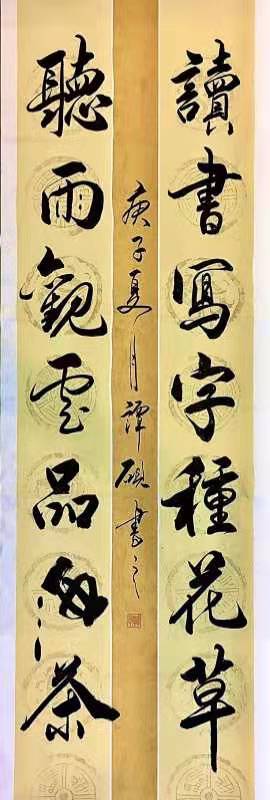 讀書寫字種花草
聽雨觀雲品茶
庚子夏月譚書之